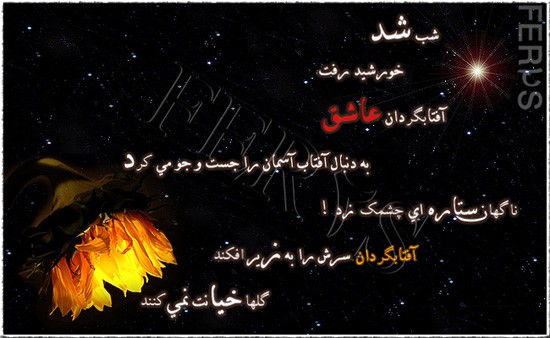 شب شد
خورشید رفت
آفتابگردان عاشق
به دنبال آفتاب آسمان را جست و جو می کرد
ناگهان ستاره ای چشمک زد !
آفتابگردان سرش را به زیر افکند
گلها خیانت نمی کنند
FERUS
FERUS